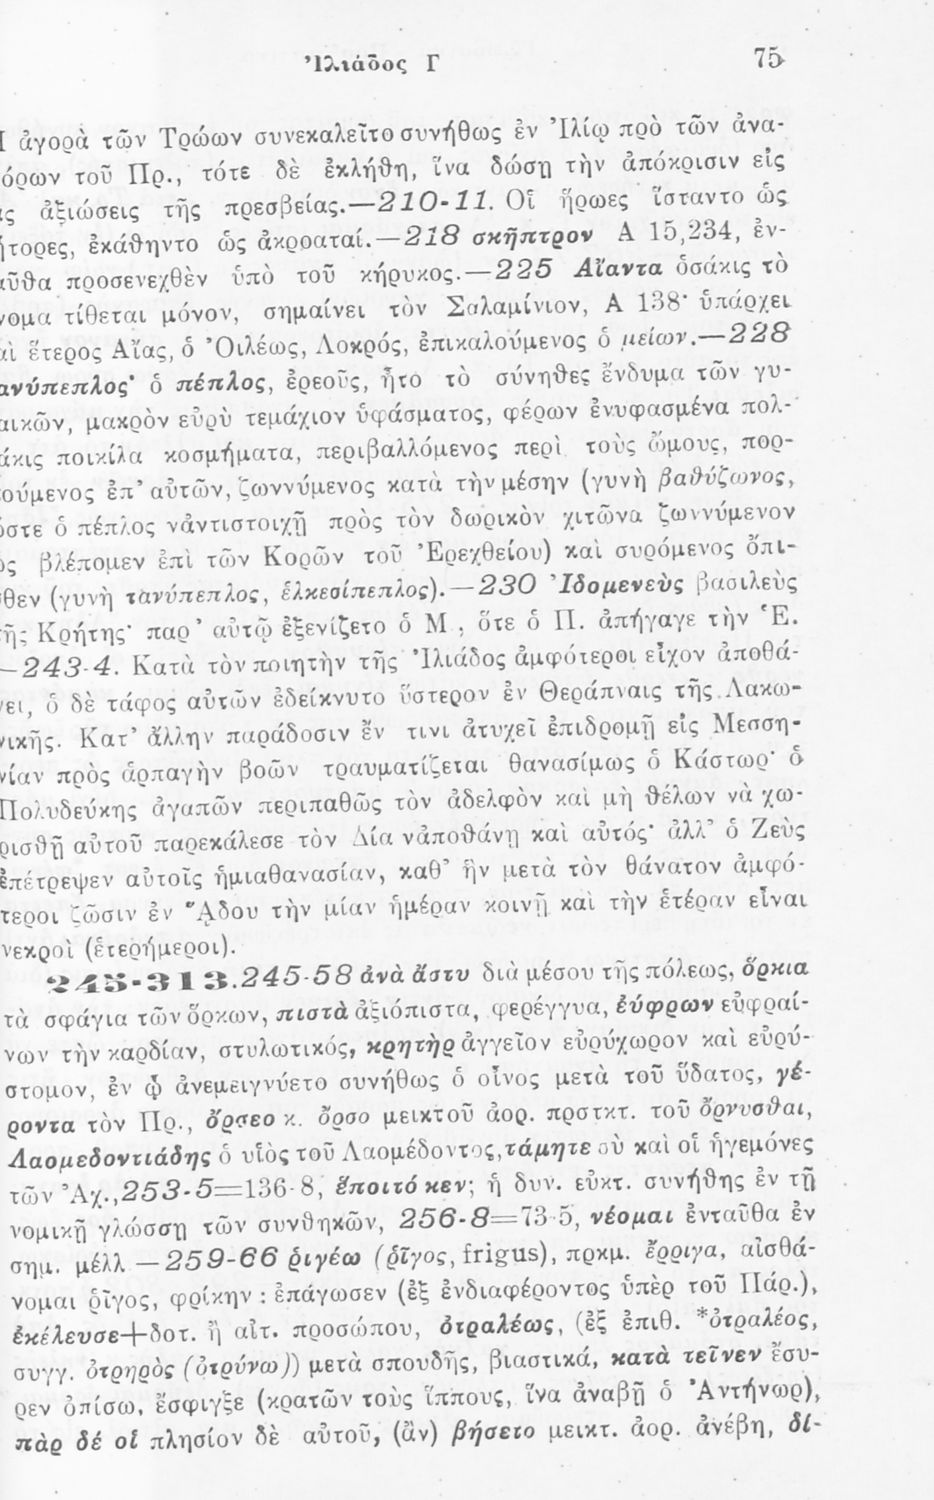 Ἰλιάδος Γ 75
ἀγορὰ τῶν Τρώων συνεκαλεῖτο συνήθως ἐν Ἰλίῳ πρὸ τῶν ἀνα-
όρων τοῦ Πρ., τότε δὲ ἐκλήθη, ἵνα δώσῃ τὴν ἀπόκρισιν εἰς
ς ἀξιώσεις τῆς πρεσβείας.—210-11. Οἱ ἥρωες ἵσταντο ὡς
ήτορες, ἐκάθηντο ὡς ἀκροαταί.—218 σκῆπτρον Α 15,234, ἐν-
αῦθα προσενεχθὲν ὑπὸ τοῦ κήρυκος.—225 Αἴαντα ὁσάκις τὸ
νομα τίθεται μόνον, σημαίνει τὸν Σαλαμίνιον, Α 138· ὑπάρχει
αὶ ἕτερος Αἴας, ὁ Ὀιλέως, Λοκρός, ἐπικαλούμενος ὁ μείων.—228
ανύπεπλος· ὁ πέπλος, ἐρεοῦς, ἦτο τὸ σύνηθες ἔνδυμα τῶν γυ-
αικῶν, μακρὸν εὐρὺ τεμάχιον ὑφάσματος, φέρων ἐνυφασμένα πολ-
άκις ποικίλα κοσμήματα, περιβαλλόμενος περὶ τοὺς ὤμους, πορ-
ούμενος ἐπ’ αὐτῶν, ζωννύμενος κατὰ τὴν μέσην (γυνὴ βαθύζωνος,
στε ὁ πέπλος νἀντιστοιχῇ πρὸς τὸν δωρικὸν χιτῶνα ζωννύμενον
ς βλέπομεν ἐπὶ τῶν Κορῶν τοῦ Ἐρεχθείου) καὶ συρόμενος ὄπι-
θεν (γυνὴ τανύπεπλος, ἑλκεσίπεπλος).—230 Ἰδομενεὺς βασιλεὺς
τῆς Κρήτης· παρ’ αὐτῷ ἐξενίζετο ὁ Μ., ὅτε ὁ Π. ἀπήγαγε τὴν Ἑ.
—243-4. Κατὰ τὸν ποιητὴν τῆς Ἰλιάδος ἀμφότεροι εἶχον ἀποθά-
νει, ὁ δὲ τάφος αὐτῶν ἐδείκνυτο ὕστερον ἐν Θεράπναις τῆς Λακω-
νικῆς. Κατ’ ἄλλην παράδοσιν ἔν τινι ἀτυχεῖ ἐπιδρομῇ εἰς Μεσση-
νίαν πρὸς ἁρπαγὴν βοῶν τραυματίζεται θανασίμως ὁ Κάστωρ· ὁ
Πολυδεύκης ἀγαπῶν περιπαθῶς τὸν ἀδελφὸν καὶ μὴ θέλων νὰ χω-
ρισθῇ αὐτοῦ παρεκάλεσε τὸν Δία νἀποθάνῃ καὶ αὐτός· ἀλλ’ ὁ Ζεὺς
ἐπέτρεψεν αὐτοῖς ἡμιαθανασίαν, καθ’ ἣν μετὰ τὸν θάνατον ἀμφό-
τεροι ζῶσιν ἐν Ἅδου τὴν μίαν ἡμέραν κοινῇ καὶ τὴν ἑτέραν εἶναι
νεκροὶ (ἑτερήμεροι).
245-313. 245-58 ἀνὰ ἄστυ διὰ μέσου τῆς πόλεως, ὅρκια
τὰ σφάγια τῶν ὅρκων, πιστὰ ἀξιόπιστα, φερέγγυα, ἐύφρων εὐφραί-
νων τὴν καρδίαν, στυλωτικός, κρητὴρ ἀγγεῖον εὐρύχωρον καὶ εὐρύ-
στομον, ἐν ᾧ ἀνεμειγνύετο συνήθως ὁ οἶνος μετὰ τοῦ ὕδατος, γέ-
ροντα τὸν Πρ., ὄρσεο κ. ὄρσο μεικτοῦ ἀορ. προτκτ. τοῦ ὄρνυσθαι,
Λαομεδοντιάδης ὁ υἱὸς τοῦ Λαομέδοντος, τάμητε σὺ καὶ οἱ ἡγεμόνες
τῶν Ἀχ., 253-5=136-8, ἕποιτό κεν; ἡ δυν. εὐκτ. συνήθης ἐν τῇ
νομικῇ γλώσσῃ τῶν συνθηκῶν, 256-8=73-5, νέομαι ἐνταῦθα ἐν
σημ. μέλλ.—259-66 ῥιγέω (ῥῖγος, frigus), πρκμ. ἔρριγα, αἰσθά-
νομαι ῥῖγος, φρίκην : ἐπάγωσεν (ἐξ ἐνδιαφέροντος ὑπὲρ τοῦ Πάρ.),
ἐκέλευσε+δοτ. ἢ αἰτ. προσώπου, ὀτραλέως, (ἐξ ἐπιθ. *ὀτραλέος,
συγγ. ὀτρηρὸς (ὀτρύνω)) μετὰ σπουδῆς, βιαστικά, κατὰ τεῖνεν ἔσυ-
ρεν ὀπίσω, ἔσφιγξε (κρατῶν τοὺς ἵππους, ἵνα ἀναβῇ ὁ Ἀντήνωρ),
πὰρ δέ οἱ πλησίον δὲ αὐτοῦ, (ἂν) βήσετο μεικτ. ἀορ. ἀνέβη, δί-